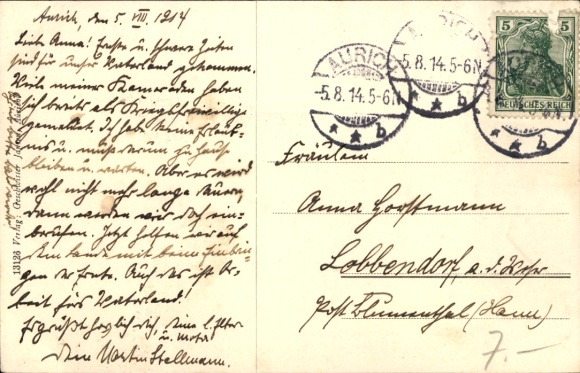 Aurich, den 5. VIII. 1914
Liebe Anna! Ernste u. schwere Zeiten
sind für unser Vaterland gekommen.
Viele meiner Kameraden haben
sich bereits als Kriegsfreiwillige
gemeldet. Ich habe keine Erlaub-
nis u. muß darum zu Hause
bleiben u. warten. Aber es wird
wohl nicht mehr lange dauern,
dann werden wir doch ein-
berufen. Jetzt helfen wir auf
dem Lande mit beim Einbrin-
gen der Ernte. Auch das ist Ar-
beit fürs Vaterland!
Es grüßt herzlich dich, deine l. Eltern
u. Meta
Dein Martin Stellmann.
13126 Verlag:
AURICH
-5.8.14.5-6N
b
AURICH
-5.8.14.5-6N
b
b
5 5
DEUTSCHES REICH
Fräulein
Anna Horstmann
Lobbendorf, a. d. Weser
Post Blumenthal (Hann)
7.-